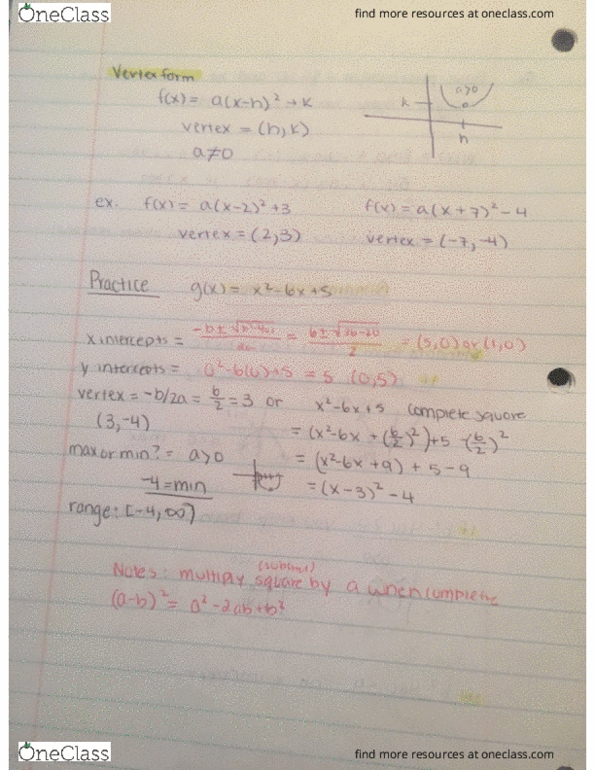 OneClass
find more resources at oneclass.com
Vertex form
f(x) = a(x-h)² + k
vertex = (h,k)
a≠0
a>0
k
h
ex. f(x) = a(x-2)² +3
f(x) = a(x+7)² - 4
vertex = (2,3)
vertex = (-7,-4)
Practice g(x) = x²-6x+5
x intercepts = -b±√b²-4ac / 2a = 6±√36-20 / 2 = (5,0) or (1,0)
y intercepts = 0²-6(0)+5 = 5 (0,5)
vertex = -b/2a = 6/2 = 3 or x²-6x+5 complete square
(3,-4)
= (x²-6x+(b/2)²)+5-(b/2)²
max or min? = a>0
= (x²-6x+9) + 5-9
-4 = min
= (x-3)² - 4
range: [-4,∞)
Notes: multiply square by a when complete
(subtract)
(a-b)² = a² - 2ab + b²
OneClass
find more resources at oneclass.com